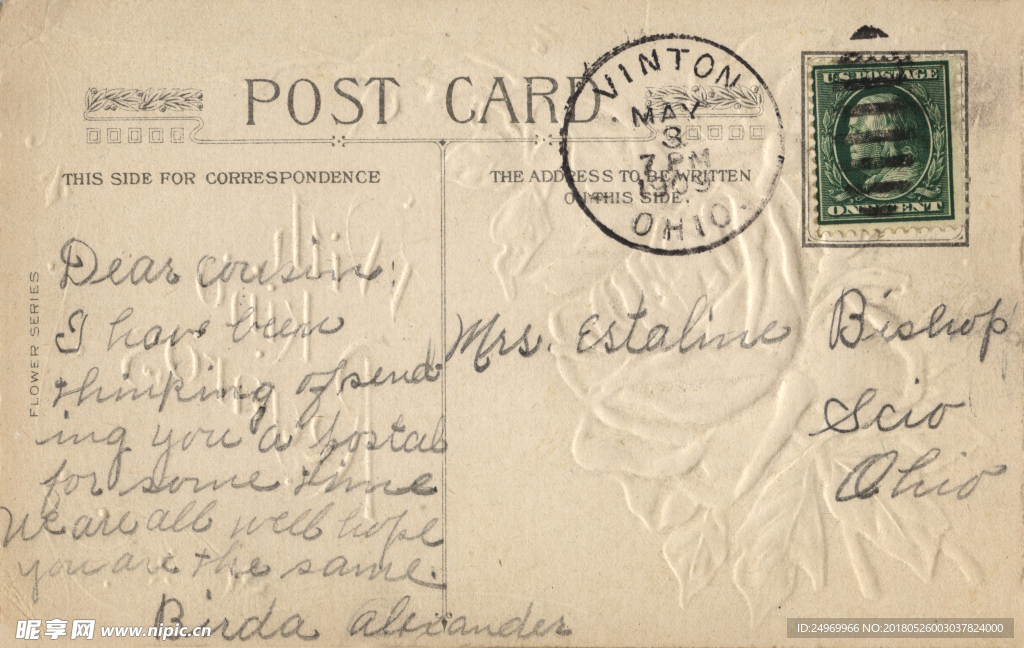 POST CARD
THIS SIDE FOR CORRESPONDENCE
THE ADDRESS TO BE WRITTEN
ON THIS SIDE.
VINTON
MAY
3
7 PM
1909
OHIO
U.S. POSTAGE
ONE CENT
FLOWER SERIES
Dear cousin:
I have been
thinking of send
ing you a postal
for some time
We are all well hope
you are the same.
Birda Alexander
Mrs. Estaline Bishop
Scio
Ohio
昵享网 www.nipic.cn
ID:24969966 NO:20180526003037824000